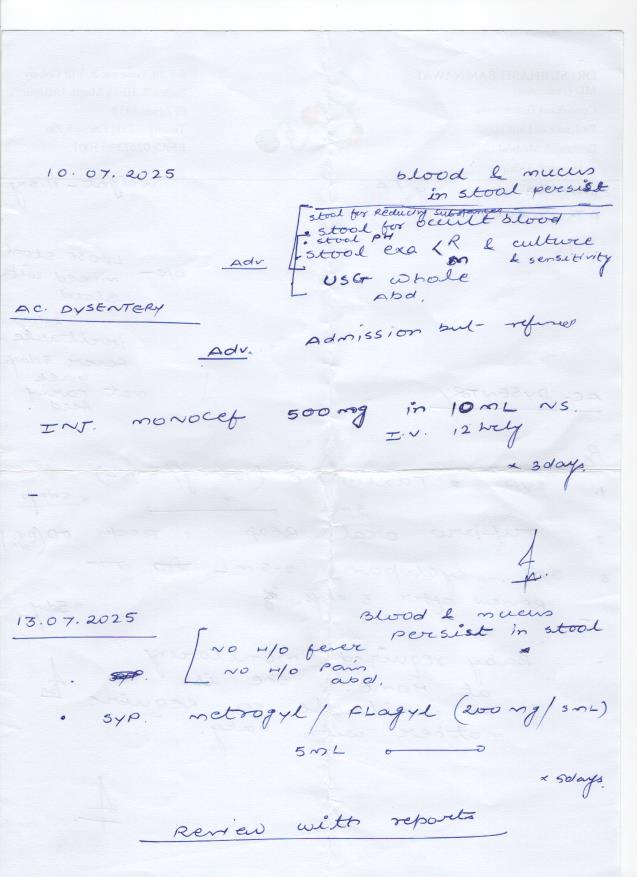 10.07.2025
blood & mucus
in stool persist
stool for Reducing substances
• stool for occult blood
• stool PH
Adv
- stool exa < R & culture
m & sensitivity
USG whole
abd.
AC. DYSENTERY
Adv.
Admission but - refused
INJ. MONOCEF 500 mg in 10 mL NS.
I.V. 12 hrly
x 3 days.
13.07.2025
Blood & mucus
persist in stool
NO H/O fever
NO H/O Pain
abd.
• SYP.
• SYP. Metrogyl / FLAgyl (200 mg / 5mL)
5 mL
x 5days.
Review with reports